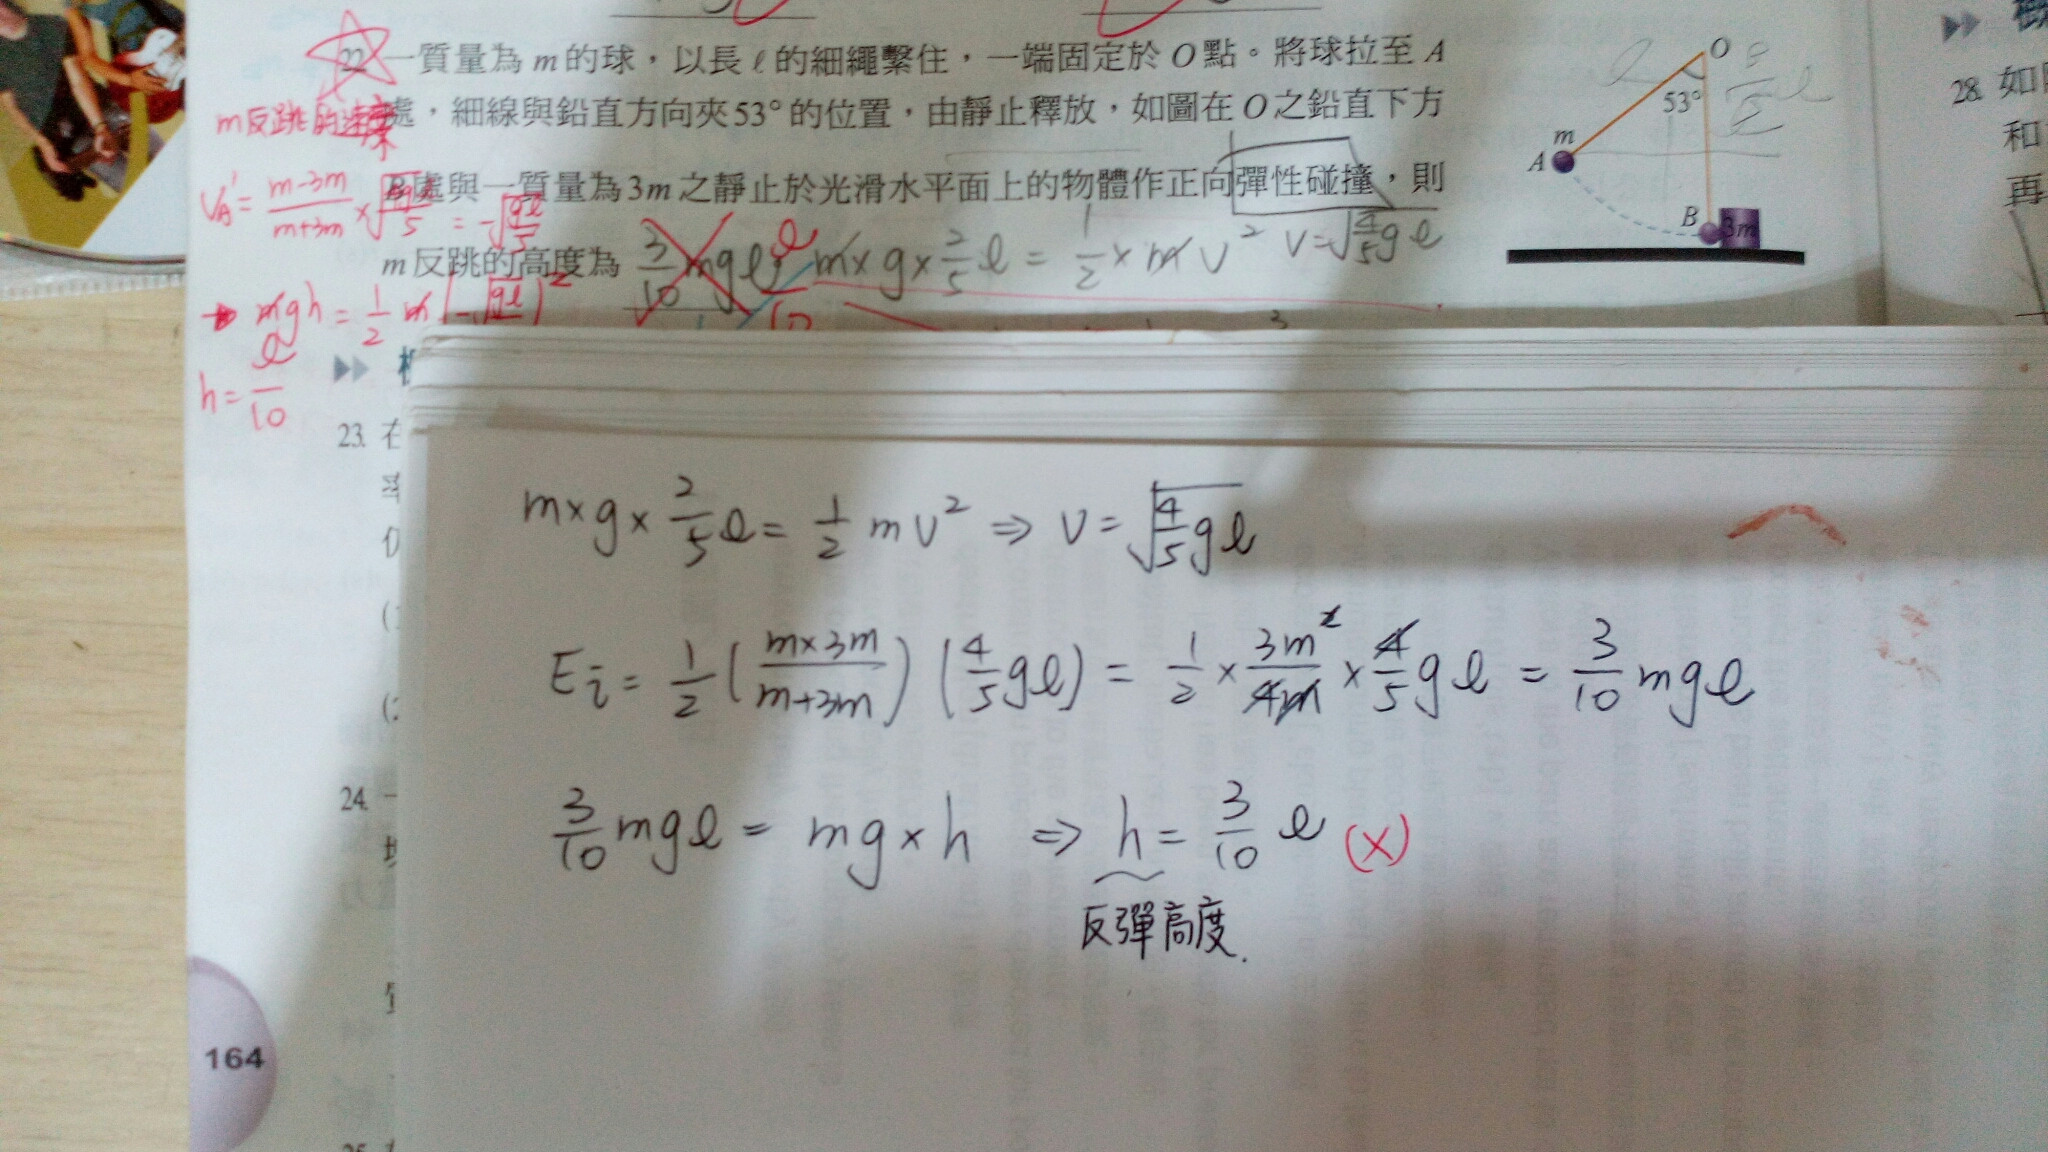 22. 一質量為 m 的球，以長 ℓ 的細繩繫住，一端固定於 O 點。將球拉至 A
處，細線與鉛直方向夾 53° 的位置，由靜止釋放，如圖在 O 之鉛直下方
B 處與一質量為 3m 之靜止於光滑水平面上的物體作正向彈性碰撞，則
m 反跳的高度為 3/10 mgℓ ℓ/10
m×g×2/5 ℓ = 1/2 × m v² v=√(4/5 gℓ)
m反跳的速率
v_A' = (m-3m)/(m+3m) × √(4gℓ/5) = -√(gℓ/5)
mgh = 1/2 m (-√(gℓ
h = ℓ/10
O
53°
ℓ
3/5 ℓ
m
A
B
3m
28. 如
和
再
23. 在
率
(1
(2
24. 一
m×g×2/5 ℓ = 1/2 m v² ⇒ v = √(4/5 gℓ)
Ei = 1/2 (m×3m/m+3m) (4/5 gℓ) = 1/2 × 3m²/4m × 4/5 gℓ = 3/10 mgℓ
3/10 mgℓ = mg×h ⇒ h = 3/10 ℓ (×)
反彈高度.
164